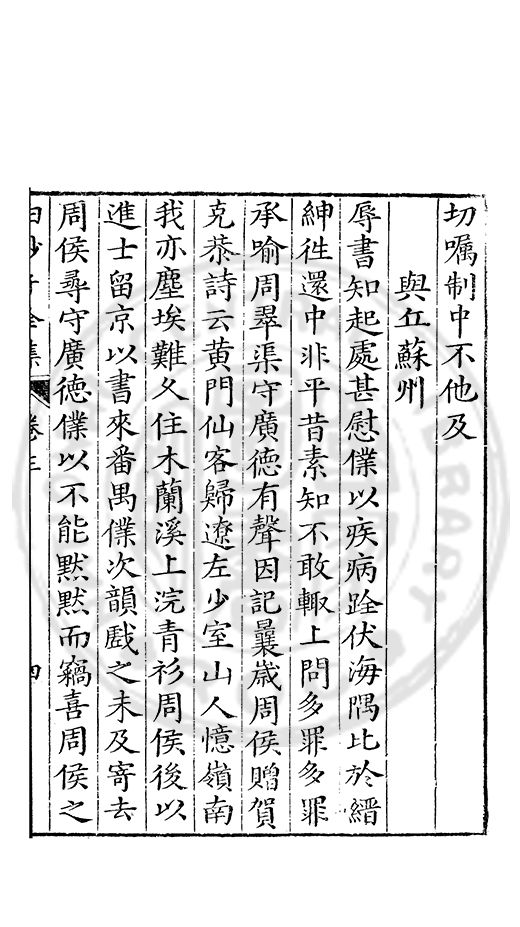 切嘱制中不他及
與丘蘇州
辱書知起處甚慰僕以疾病跧伏海隅比於縉
紳徃還中非平昔素知不敢輙上問多罪多罪
承喻周翠渠守廣德有聲因記曩歳周侯贈賀
克恭詩云黄門仙客歸遼左少室山人憶嶺南
我亦塵埃難久住木蘭溪上浣青衫周侯後以
進士留京以書來番禺僕次韻戯之未及寄去
周侯尋守廣徳僕以不能黙黙而竊喜周侯之
白沙子全集 卷三 四